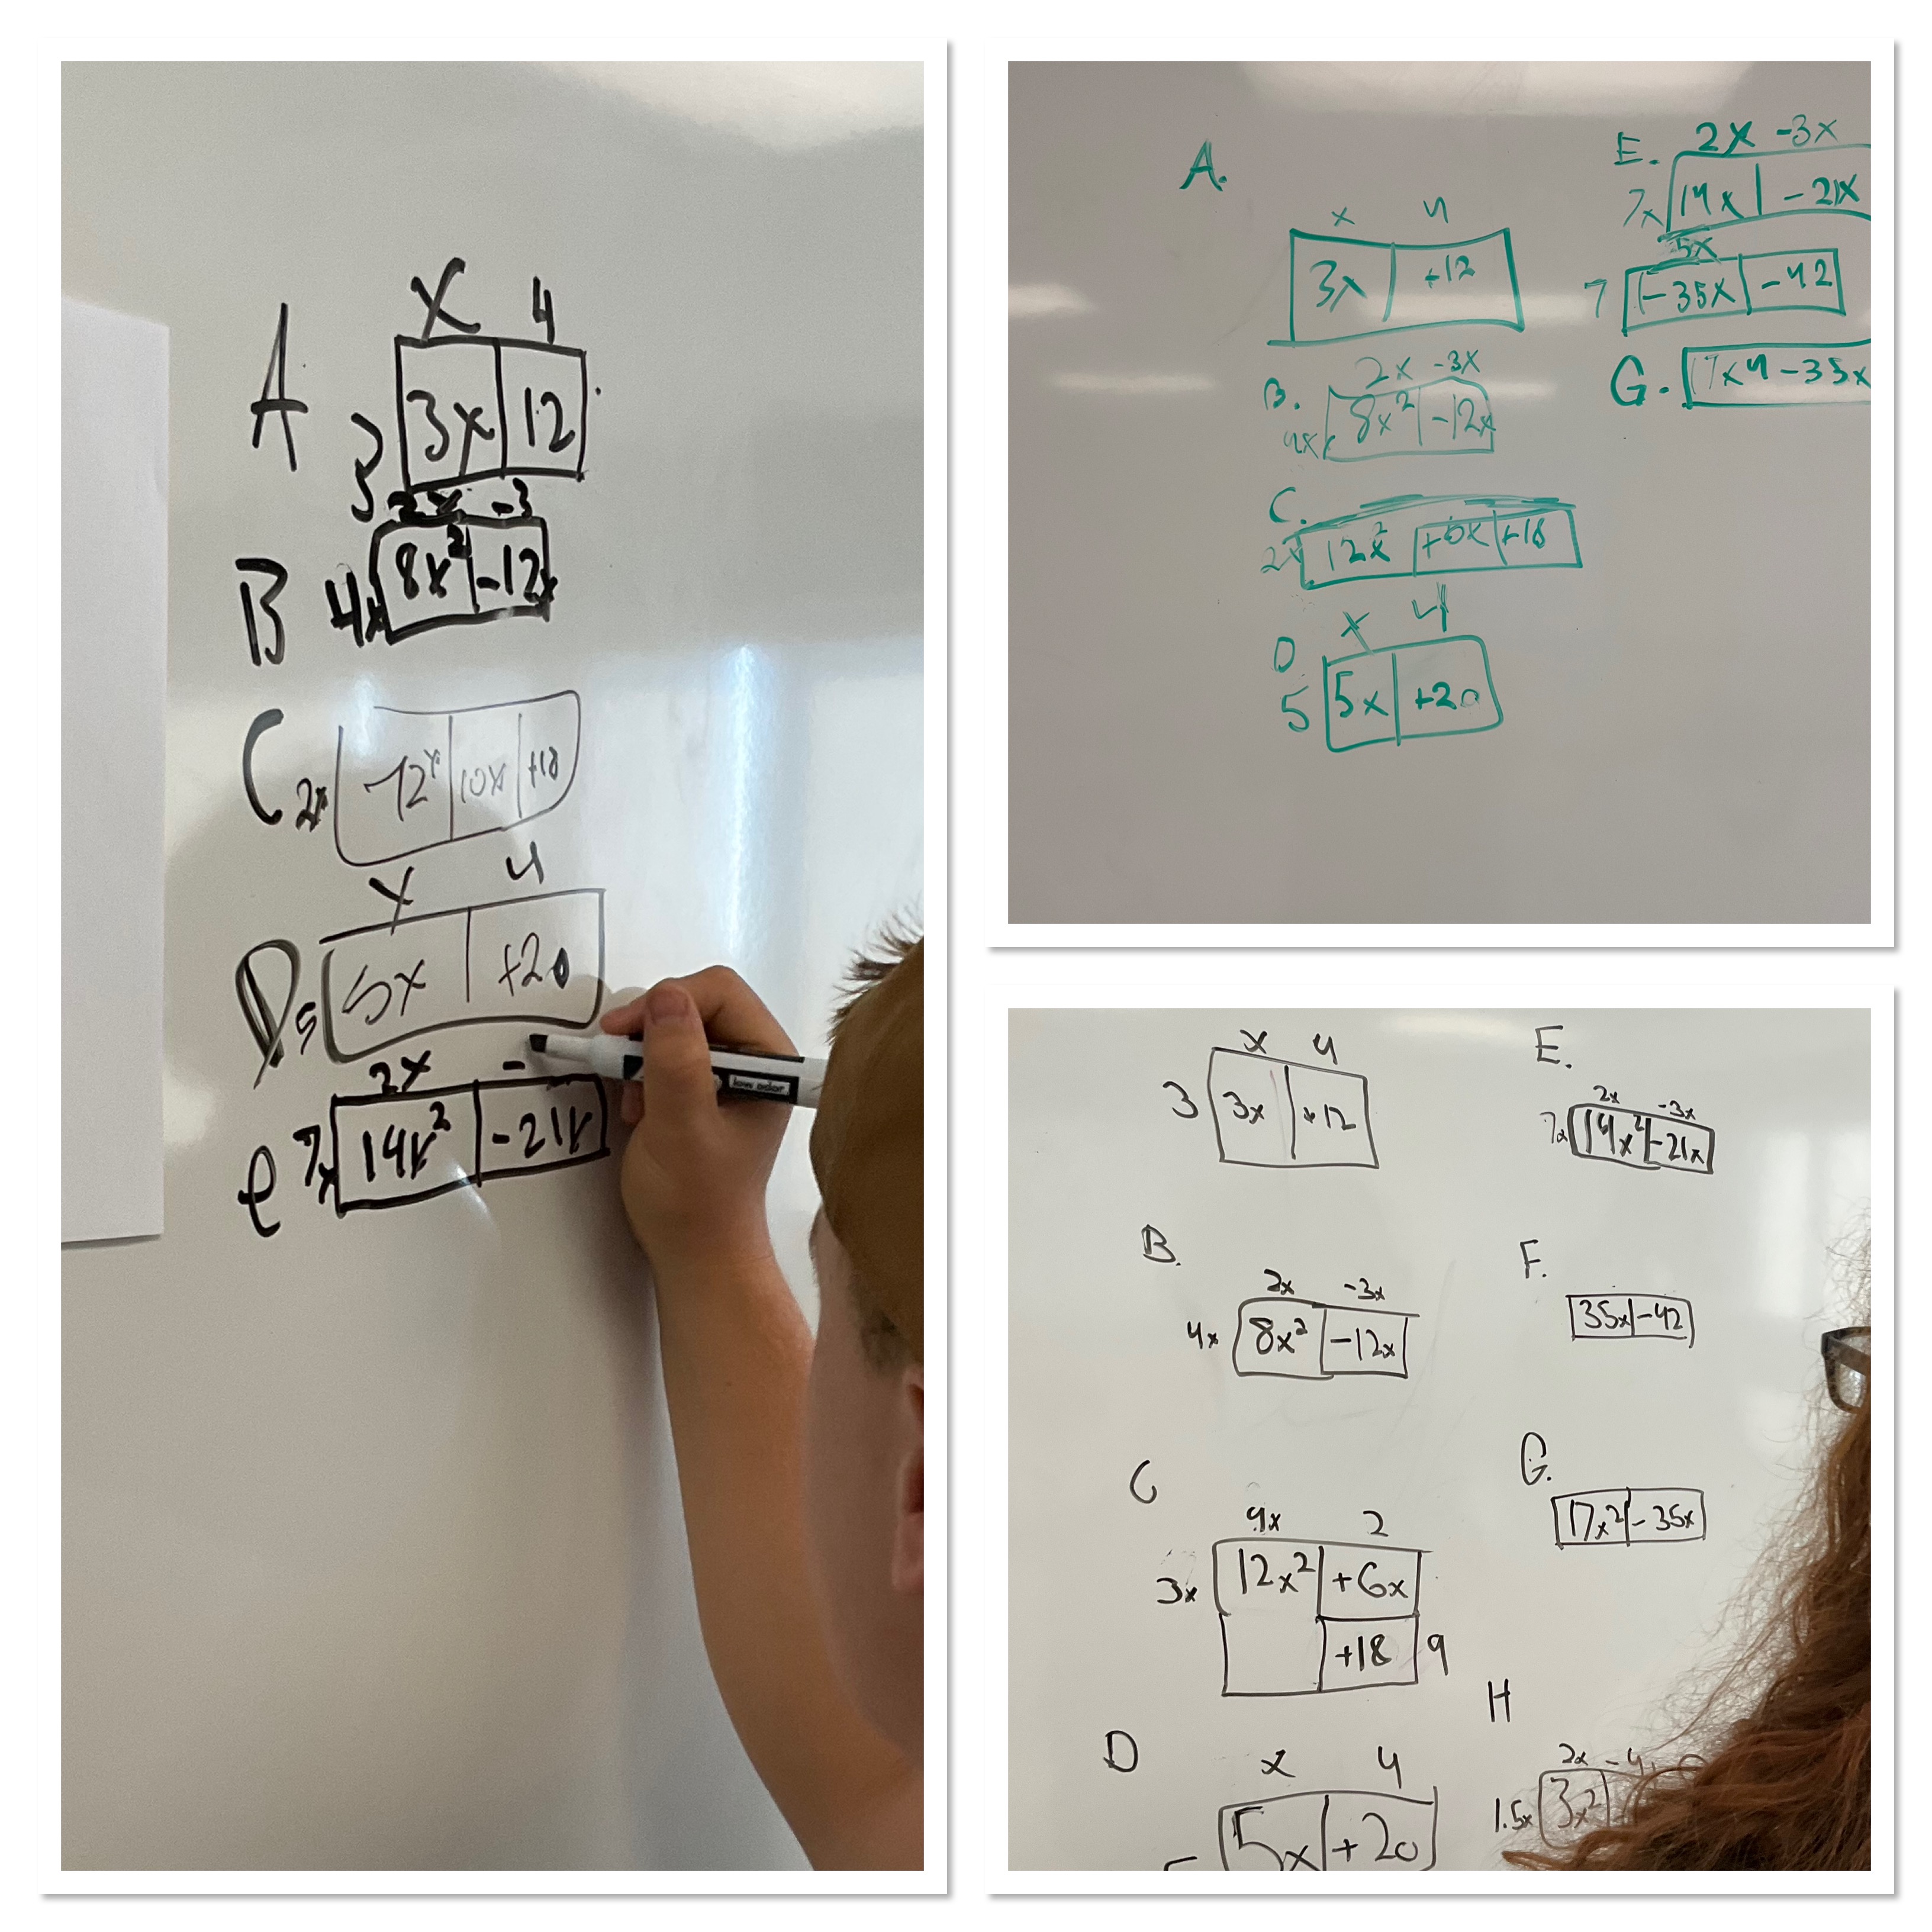 A
x 4
3 3x 12
2x -3
B 4x 8x² -12x
C 2x -12x 10x +18
x 4
D 5 5x +20
2x -
e 7x 14x² -21x
low odor
A.
x 4
3x +12
B. 2x -3x
4x 8x² -12x
C.
2x 12x² +6x +18
D x 4
5 5x +20
E. 2x -3x
7x 14x -21x
5x
7 -35x -42
G. 17x4 -35x
x 4
3 3x +12
B.
2x -3x
4x 8x² -12x
C
4x 2
3x 12x² +6x
+18 9
D
x 4
5x +20
E.
2x -3x
7x 14x² -21x
F.
35x -42
G.
17x² -35x
H
2x -4
1.5x 3x²